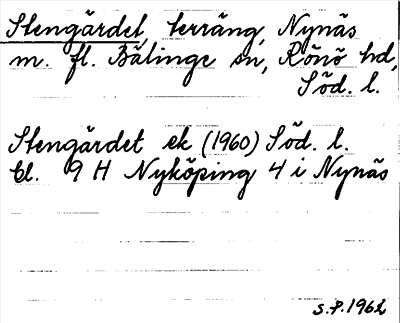 Stengärdet, terräng, Nynäs
m. fl. Bälinge sn, Rönö hd,
Söd. l.
Stengärdet ek (1960) Söd. l.
bl. 9 H Nyköping 4 i Nynäs
S.P. 1962